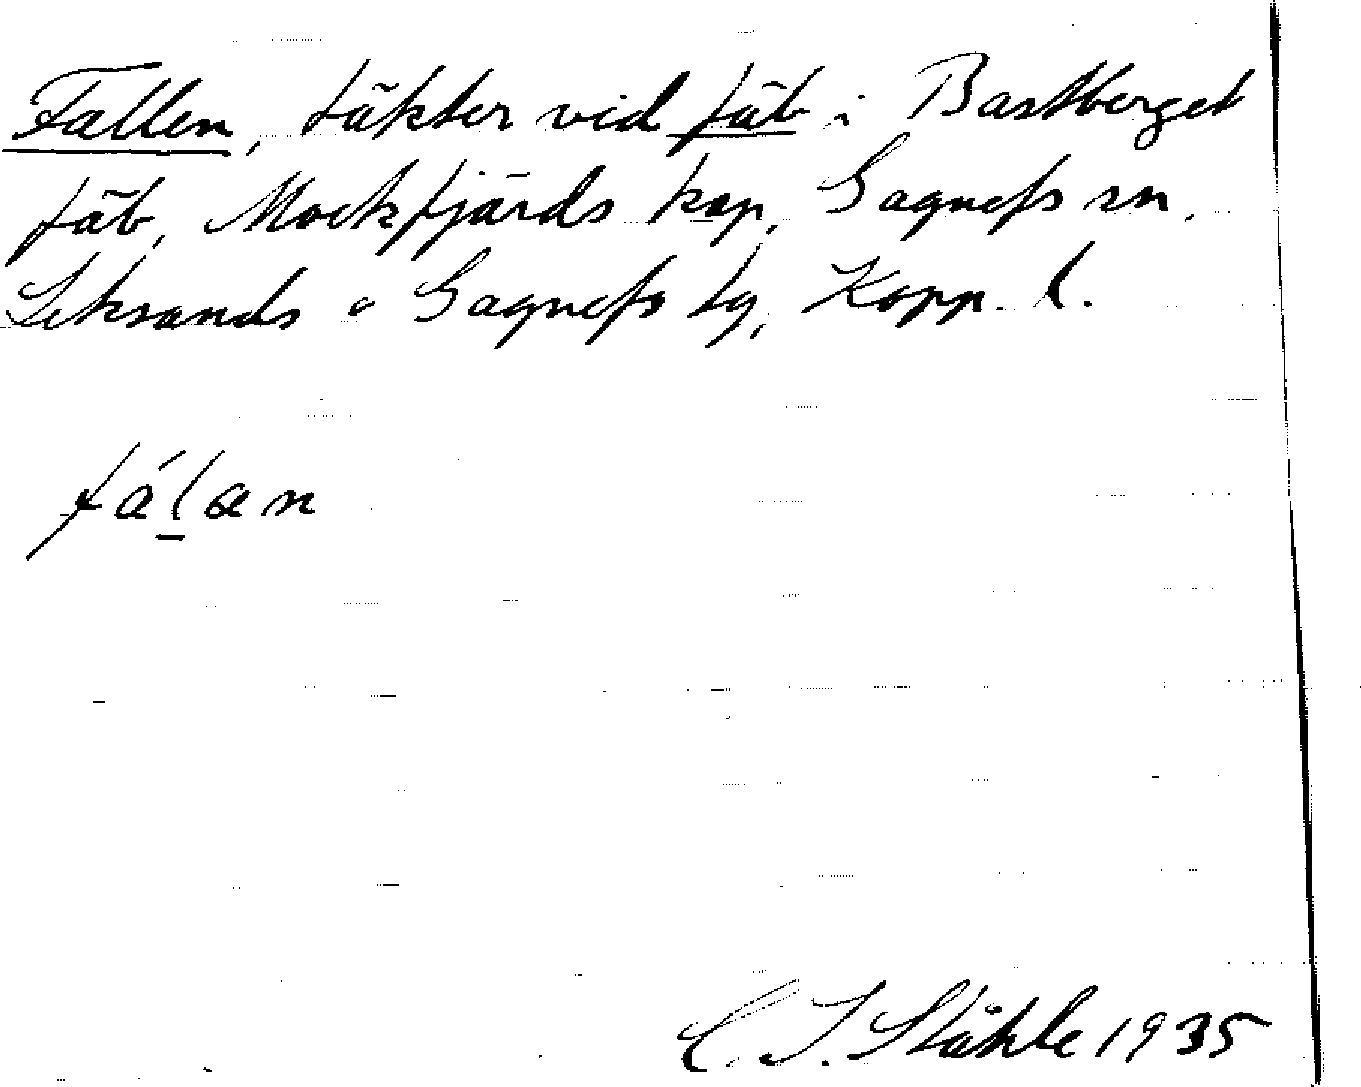 Fallen, täkter vid fäb i Bastberget
fäb, Mockfjärds kap, Gagnefs sn,
Leksands o Gagnefs tg, Kopp. l.
fáḻæn
C. I. Ståhle 1935